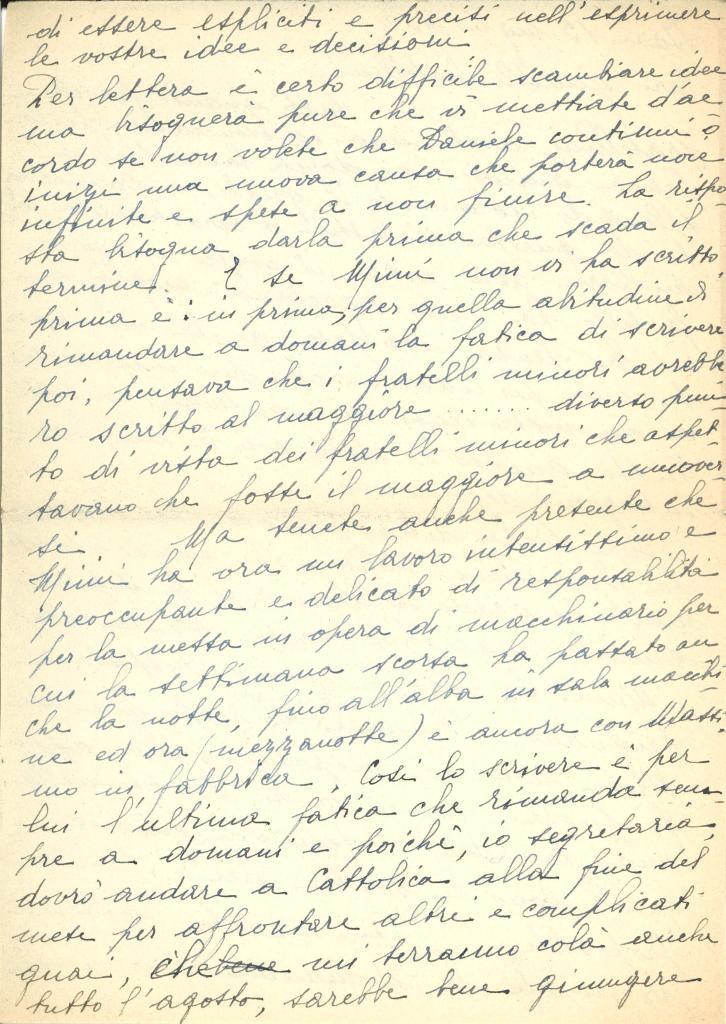 di essere espliciti e precisi nell'esprimere
le vostre idee e decisioni
Per lettera è certo difficile scambiare idee
ma bisognerà pure che vi mettiate d'ac
cordo se non volete che Daniele continui o
inizi una nuova causa che porterà noie
infinite e spese a non finire. La rispo
sta bisogna darla prima che scada il
termine. E se Mimì non vi ha scritto
prima è: in prima, per quella abitudine di
rimandare a domani la fatica di scrivere
poi, pensava che i fratelli minori avrebbe
ro scritto al maggiore ........ diverso pun
to di vista dei fratelli minori che aspet
tavano che fosse il maggiore a muover
si Ma tenete anche presente che
Mimì ha ora un lavoro intensissimo e
preoccupante e delicato di responsabilità
per la messa in opera di macchinario per
cui la settimana scorsa ha passato an
che la notte, fino all'alba in sala macchi
ne ed ora (mezzanotte) è ancora con Massi
mo in fabbrica. Così lo scrivere è per
lui l'ultima fatica che rimanda sem
pre a domani e poichè, io segretaria,
dovrò andare a Cattolica alla fine del
mese per affrontare altri e complicati
guai, che mi terranno colà anche
tutto l'agosto, sarebbe bene giungere